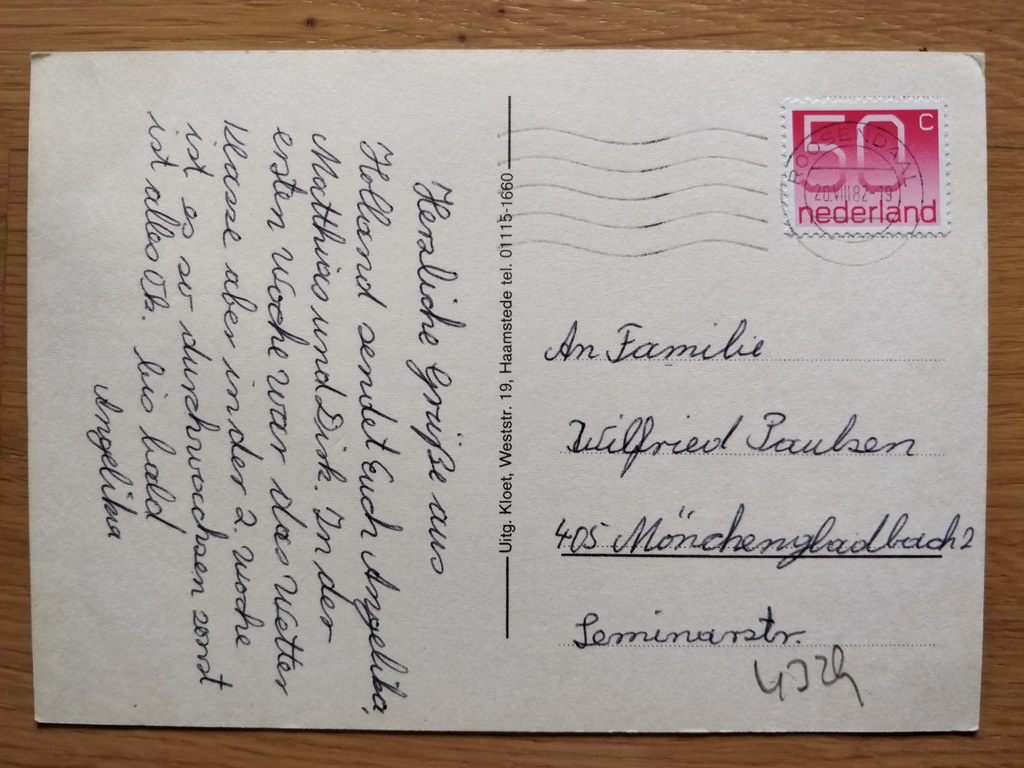 Hersliche Grüße aus
Holland sendet Euch Angelika,
Matthias und Dirk. In der
ersten Woche war das Wetter
Klasse aber in der 2. Woche
ist es so durchwachsen sonst
ist alles Ok. bis bald
Angelika
Uitg. Kloet, Weststr. 19, Haamstede tel. 01115-1660
50 c
nederland
ROOSENDAAL
20.VIII.82-19
An Familie
Wilfried Paulsen
405 Mönchengladbach 2
Seminarstr.